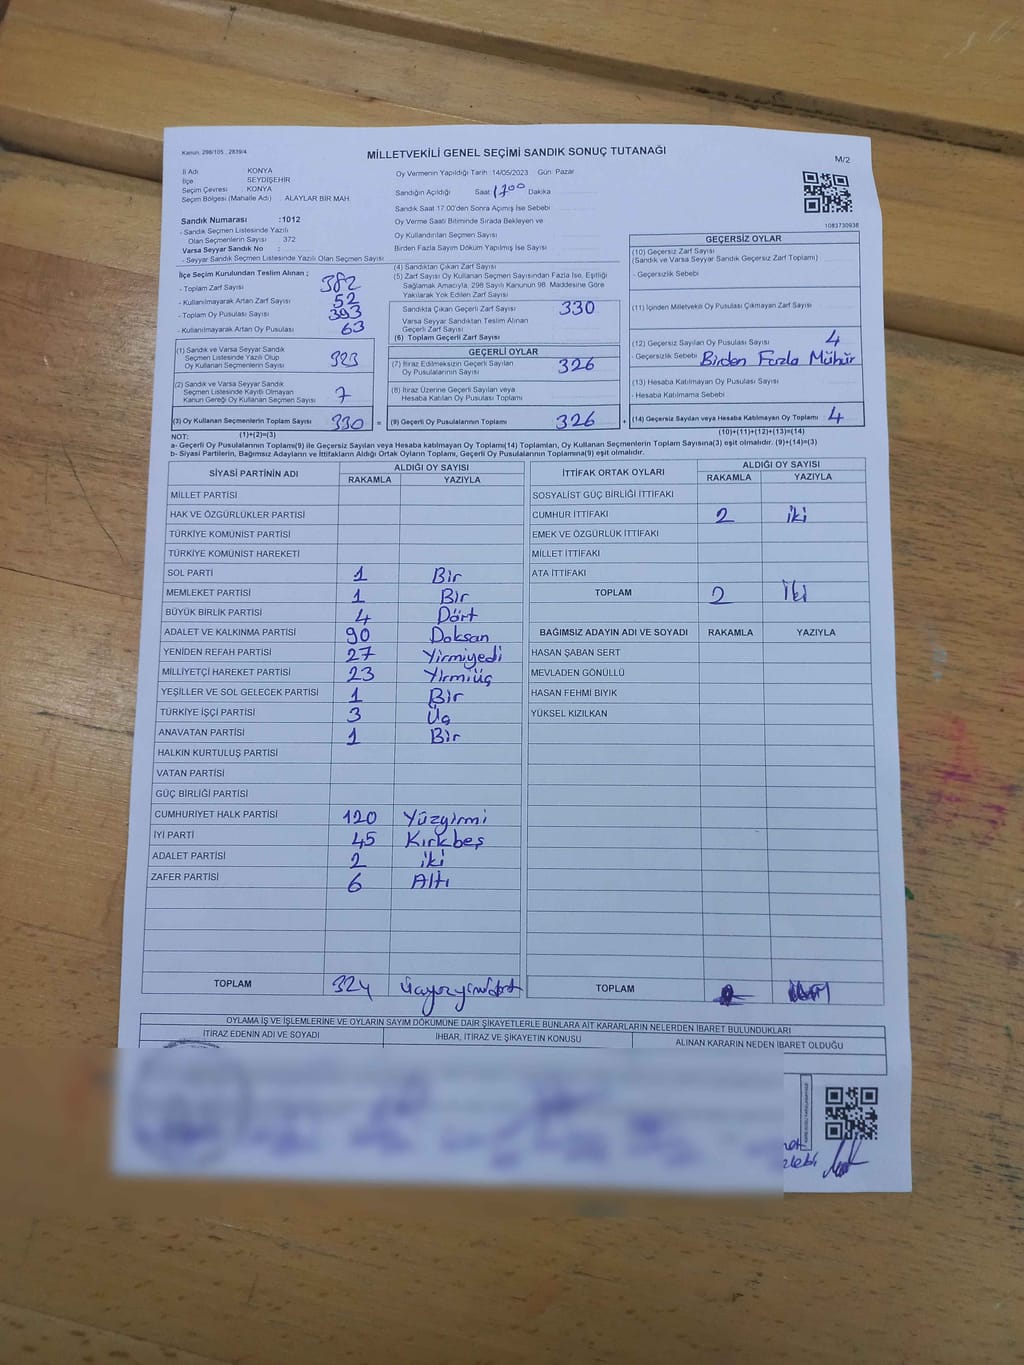 Kanun: 298/105 , 2839/4
MİLLETVEKİLİ GENEL SEÇİMİ SANDIK SONUÇ TUTANAĞI
M/2
İl Adı KONYA
İlçe SEYDİŞEHİR
Seçim Çevresi KONYA
Seçim Bölgesi (Mahalle Adı) ALAYLAR BİR MAH
Sandık Numarası :1012
- Sandık Seçmen Listesinde Yazılı
Olan Seçmenlerin Sayısı : 372
Varsa Seyyar Sandık No :
- Seyyar Sandık Seçmen Listesinde Yazılı Olan Seçmen Sayısı
Oy Vermenin Yapıldığı Tarih :14/05/2023 Gün: Pazar
Sandığın Açıldığı Saat 17 00 Dakika
Sandık Saat 17.00'den Sonra Açılmış İse Sebebi
Oy Verme Saati Bitiminde Sırada Bekleyen ve
Oy Kullandırılan Seçmen Sayısı
Birden Fazla Sayım Döküm Yapılmış İse Sayısı
1083730938
İlçe Seçim Kurulundan Teslim Alınan ;
- Toplam Zarf Sayısı 382
- Kullanılmayarak Artan Zarf Sayısı 52
- Toplam Oy Pusulası Sayısı 393
- Kullanılmayarak Artan Oy Pusulası 63
(1) Sandık ve Varsa Seyyar Sandık
Seçmen Listesinde Yazılı Olup
Oy Kullanan Seçmenlerin Sayısı 323
(2) Sandık ve Varsa Seyyar Sandık
Seçmen Listesinde Kayıtlı Olmayan
Kanun Gereği Oy Kullanan Seçmen Sayısı 7
(3) Oy Kullanan Seçmenlerin Toplam Sayısı 330 =
(4) Sandıktan Çıkan Zarf Sayısı
(5) Zarf Sayısı Oy Kullanan Seçmen Sayısından Fazla İse, Eşitliği
Sağlamak Amacıyla, 298 Sayılı Kanunun 98. Maddesine Göre
Yakılarak Yok Edilen Zarf Sayısı
Sandıkta Çıkan Geçerli Zarf Sayısı 330
Varsa Seyyar Sandıktan Teslim Alınan
Geçerli Zarf Sayısı
(6) Toplam Geçerli Zarf Sayısı
GEÇERLİ OYLAR
(7) İtiraz Edilmeksizin Geçerli Sayılan
Oy Pusulalarının Sayısı 326
(8) İtiraz Üzerine Geçerli Sayılan veya
Hesaba Katılan Oy Pusulası Toplamı
(9) Geçerli Oy Pusulalarının Toplamı 326 +
GEÇERSİZ OYLAR
(10) Geçersiz Zarf Sayısı
(Sandık ve Varsa Seyyar Sandık Geçersiz Zarf Toplamı)
- Geçersizlik Sebebi
(11) İçinden Milletvekili Oy Pusulası Çıkmayan Zarf Sayısı
(12) Geçersiz Sayılan Oy Pusulası Sayısı 4
- Geçersizlik Sebebi Birden Fazla Mühür
(13) Hesaba Katılmayan Oy Pusulası Sayısı
- Hesaba Katılmama Sebebi
(14) Geçersiz Sayılan veya Hesaba Katılmayan Oy Toplamı 4
NOT: (1)+(2)=(3) (10)+(11)+(12)+(13)=(14)
a- Geçerli Oy Pusulalarının Toplamı(9) ile Geçersiz Sayılan veya Hesaba katılmayan Oy Toplamı(14) Toplamları, Oy Kullanan Seçmenlerin Toplam Sayısına(3) eşit olmalıdır. (9)+(14)=(3)
b- Siyasi Partilerin, Bağımsız Adayların ve İttifakların Aldığı Ortak Oyların Toplamı, Geçerli Oy Pusulalarının Toplamına(9) eşit olmalıdır.
SİYASİ PARTİNİN ADI ALDIĞI OY SAYISI
RAKAMLA YAZIYLA
MİLLET PARTİSİ
HAK VE ÖZGÜRLÜKLER PARTİSİ
TÜRKİYE KOMÜNİST PARTİSİ
TÜRKİYE KOMÜNİST HAREKETİ
SOL PARTİ 1 Bir
MEMLEKET PARTİSİ 1 Bir
BÜYÜK BİRLİK PARTİSİ 4 Dört
ADALET VE KALKINMA PARTİSİ 90 Doksan
YENİDEN REFAH PARTİSİ 27 Yirmiyedi
MİLLİYETÇİ HAREKET PARTİSİ 23 Yirmiüç
YEŞİLLER VE SOL GELECEK PARTİSİ 1 Bir
TÜRKİYE İŞÇİ PARTİSİ 3 Üç
ANAVATAN PARTİSİ 1 Bir
HALKIN KURTULUŞ PARTİSİ
VATAN PARTİSİ
GÜÇ BİRLİĞİ PARTİSİ
CUMHURİYET HALK PARTİSİ 120 Yüzyirmi
İYİ PARTİ 45 Kırkbeş
ADALET PARTİSİ 2 iki
ZAFER PARTİSİ 6 Altı
TOPLAM 324
İTTİFAK ORTAK OYLARI ALDIĞI OY SAYISI
RAKAMLA YAZIYLA
SOSYALİST GÜÇ BİRLİĞİ İTTİFAKI
CUMHUR İTTİFAKI 2 iki
EMEK VE ÖZGÜRLÜK İTTİFAKI
MİLLET İTTİFAKI
ATA İTTİFAKI
TOPLAM 2 İki
BAĞIMSIZ ADAYIN ADI VE SOYADI RAKAMLA YAZIYLA
HASAN ŞABAN SERT
MEVLADEN GÖNÜLLÜ
HASAN FEHMİ BIYIK
YÜKSEL KIZILKAN
TOPLAM
OYLAMA İŞ VE İŞLEMLERİNE VE OYLARIN SAYIM DÖKÜMÜNE DAİR ŞİKAYETLERLE BUNLARA AİT KARARLARIN NELERDEN İBARET BULUNDUKLARI
İTİRAZ EDENİN ADI VE SOYADI İHBAR, İTİRAZ VE ŞİKAYETİN KONUSU ALINAN KARARIN NEDEN İBARET OLDUĞU